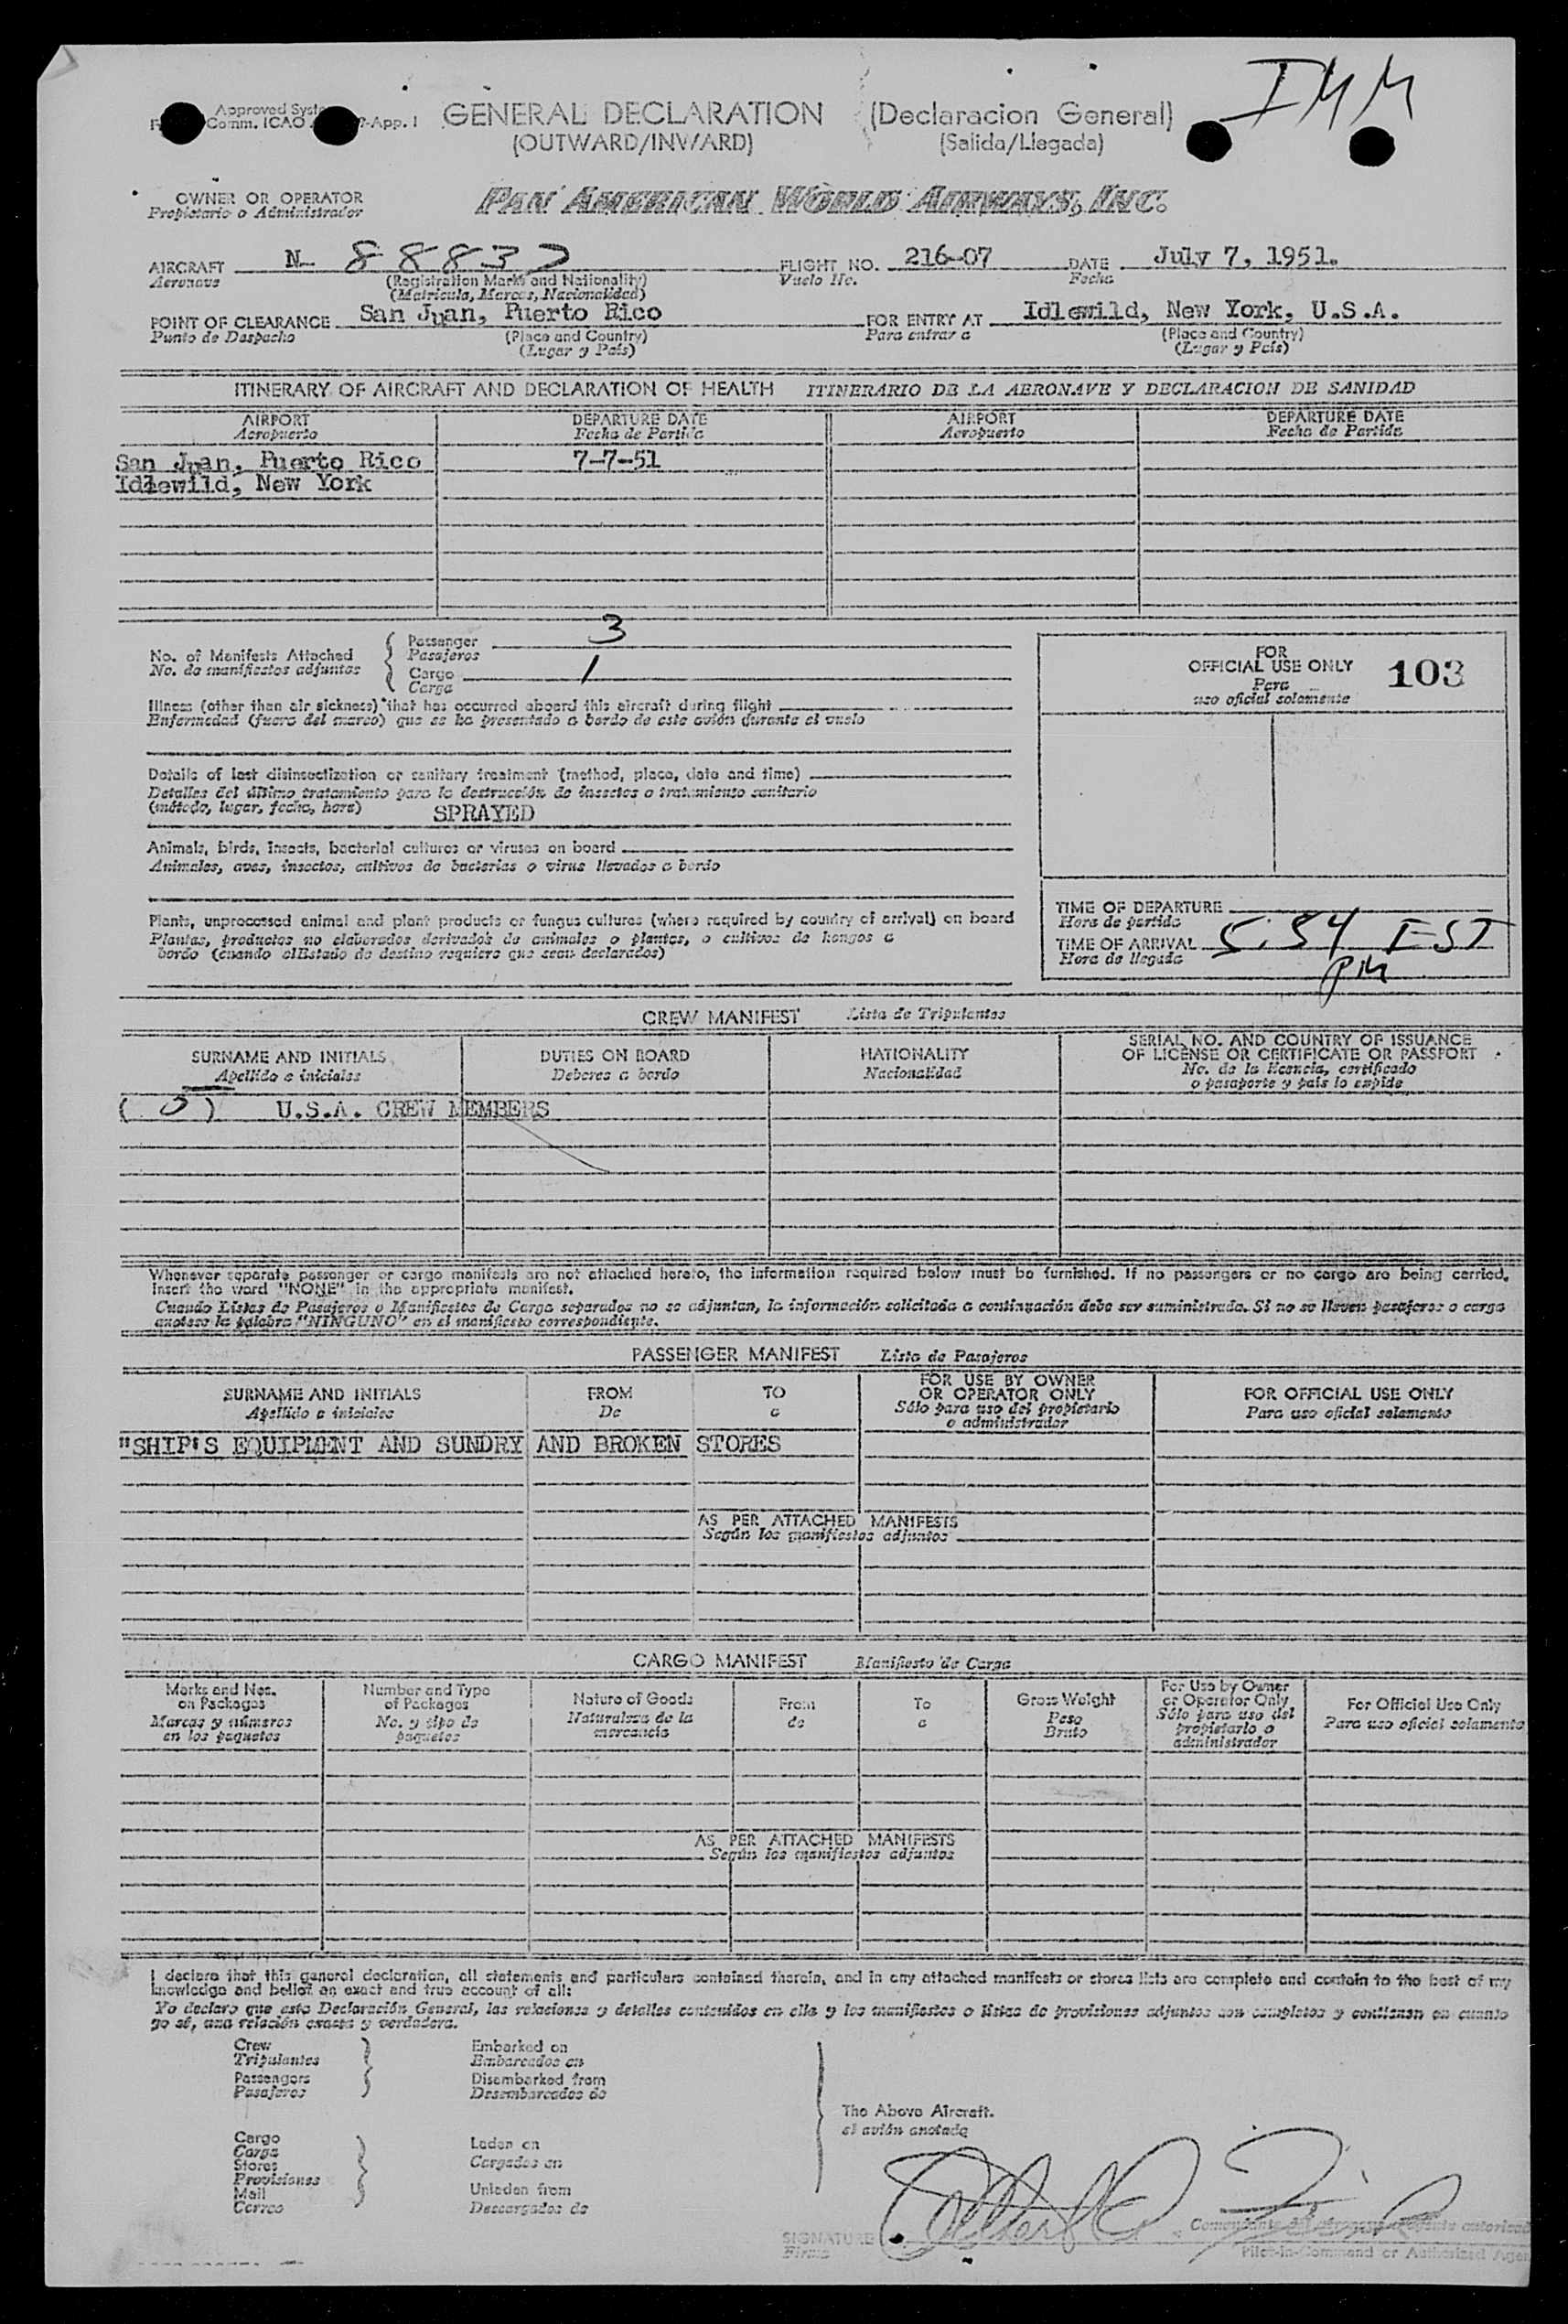 IMM
Approved
Comm. ICAO -App. I
GENERAL DECLARATION (Declaracion General)
(OUTWARD/INWARD) (Salida/Llegada)
OWNER OR OPERATOR
Propietario o Administrador
PAN AMERICAN WORLD AIRWAYS, INC.
AIRCRAFT N- 88837 FLIGHT NO. 216-07 DATE July 7, 1951.
Aeronave (Registration Marks and Nationality) Vuelo No. Fecha
(Matricula, Marcas, Nacionalidad)
POINT OF CLEARANCE San Juan, Puerto Rico FOR ENTRY AT Idlewild, New York, U.S.A.
Punto de Despacho (Place and Country) Para entrar a (Place and Country)
(Lugar y País) (Lugar y País)
ITINERARY OF AIRCRAFT AND DECLARATION OF HEALTH ITINERARIO DE LA AERONAVE Y DECLARACION DE SANIDAD
AIRPORT DEPARTURE DATE AIRPORT DEPARTURE DATE
Aeropuerto Fecha de Partida Aeropuerto Fecha de Partida
San Juan, Puerto Rico 7-7-51
Idlewild, New York
No. of Manifests Attached
No. de manifiestos adjuntos
Passenger 3
Pasajeros
Cargo 1
Carga
FOR
OFFICIAL USE ONLY 103
Para
uso oficial solamente
Illness (other than air sickness) that has occurred aboard this aircraft during flight
Enfermedad (fuera del mareo) que se ha presentado a bordo de este avión durante el vuelo
Details of last disinsectization or sanitary treatment (method, place, date and time)
Detalles del último tratamiento para la destrucción de insectos o tratamiento sanitario
(método, lugar, fecha, hora) SPRAYED
Animals, birds, insects, bacterial cultures or viruses on board
Animales, aves, insectos, cultivos de bacterias o virus llevados a bordo
Plants, unprocessed animal and plant products or fungus cultures (where required by country of arrival) on board
Plantas, productos no elaborados derivados de animales o plantas, o cultivos de hongos a
bordo (cuando el Estado de destino requiere que sean declarados)
TIME OF DEPARTURE
Hora de partida
TIME OF ARRIVAL 5:54 EST
Hora de llegada PM
CREW MANIFEST Lista de Tripulantes
SURNAME AND INITIALS DUTIES ON BOARD NATIONALITY SERIAL NO. AND COUNTRY OF ISSUANCE
OF LICENSE OR CERTIFICATE OR PASSPORT
Apellido e iniciales Deberes a bordo Nacionalidad No. de la licencia, certificado
o pasaporte y país lo expide
( 5 ) U.S.A. CREW MEMBERS
Whenever separate passenger or cargo manifests are not attached hereto, the information required below must be furnished. If no passengers or no cargo are being carried,
insert the word "NONE" in the appropriate manifest.
Cuando Listas de Pasajeros o Manifiestos de Carga separados no se adjuntan, la información solicitada a continuación debe ser suministrada. Si no se lleven pasajeros o carga
anotese la palabra "NINGUNO" en el manifiesto correspondiente.
PASSENGER MANIFEST Lista de Pasajeros
SURNAME AND INITIALS FROM TO FOR USE BY OWNER
OR OPERATOR ONLY FOR OFFICIAL USE ONLY
Apellido e iniciales De a Sólo para uso del propietario
o administrador Para uso oficial solamente
"SHIP'S EQUIPMENT AND SUNDRY AND BROKEN STORES
AS PER ATTACHED MANIFESTS
Según los manifiestos adjuntos
CARGO MANIFEST Manifiesto de Carga
Marks and Nos.
on Packages
Marcas y números
en los paquetes
Number and Type
of Packages
No. y tipo de
paquetes
Nature of Goods
Naturaleza de la
mercancía
From
de
To
a
Gross Weight
Peso
Bruto
For Use by Owner
or Operator Only
Sólo para uso del
propietario o
administrador
For Official Use Only
Para uso oficial solamente
AS PER ATTACHED MANIFESTS
Según los manifiestos adjuntos
I declare that this general declaration, all statements and particulars contained therein, and in any attached manifests or stores lists are complete and contain to the best of my
knowledge and belief an exact and true account of all:
Yo declaro que esta Declaración General, las relaciones y detalles contenidos en ella y los manifiestos o listas de provisiones adjuntos son completos y contienen en cuanto
yo sé, una relación exacta y verdadera.
Crew Embarked on
Tripulantes Embarcados en
Passengers Disembarked from
Pasajeros Desembarcados de
The Above Aircraft.
el avión anotado
Cargo
Carga
Stores
Provisiones
Mail
Correo
Laden on
Cargados en
Unladen from
Descargados de
SIGNATURE
Firma
Pilot-in-Command or Authorized Agen